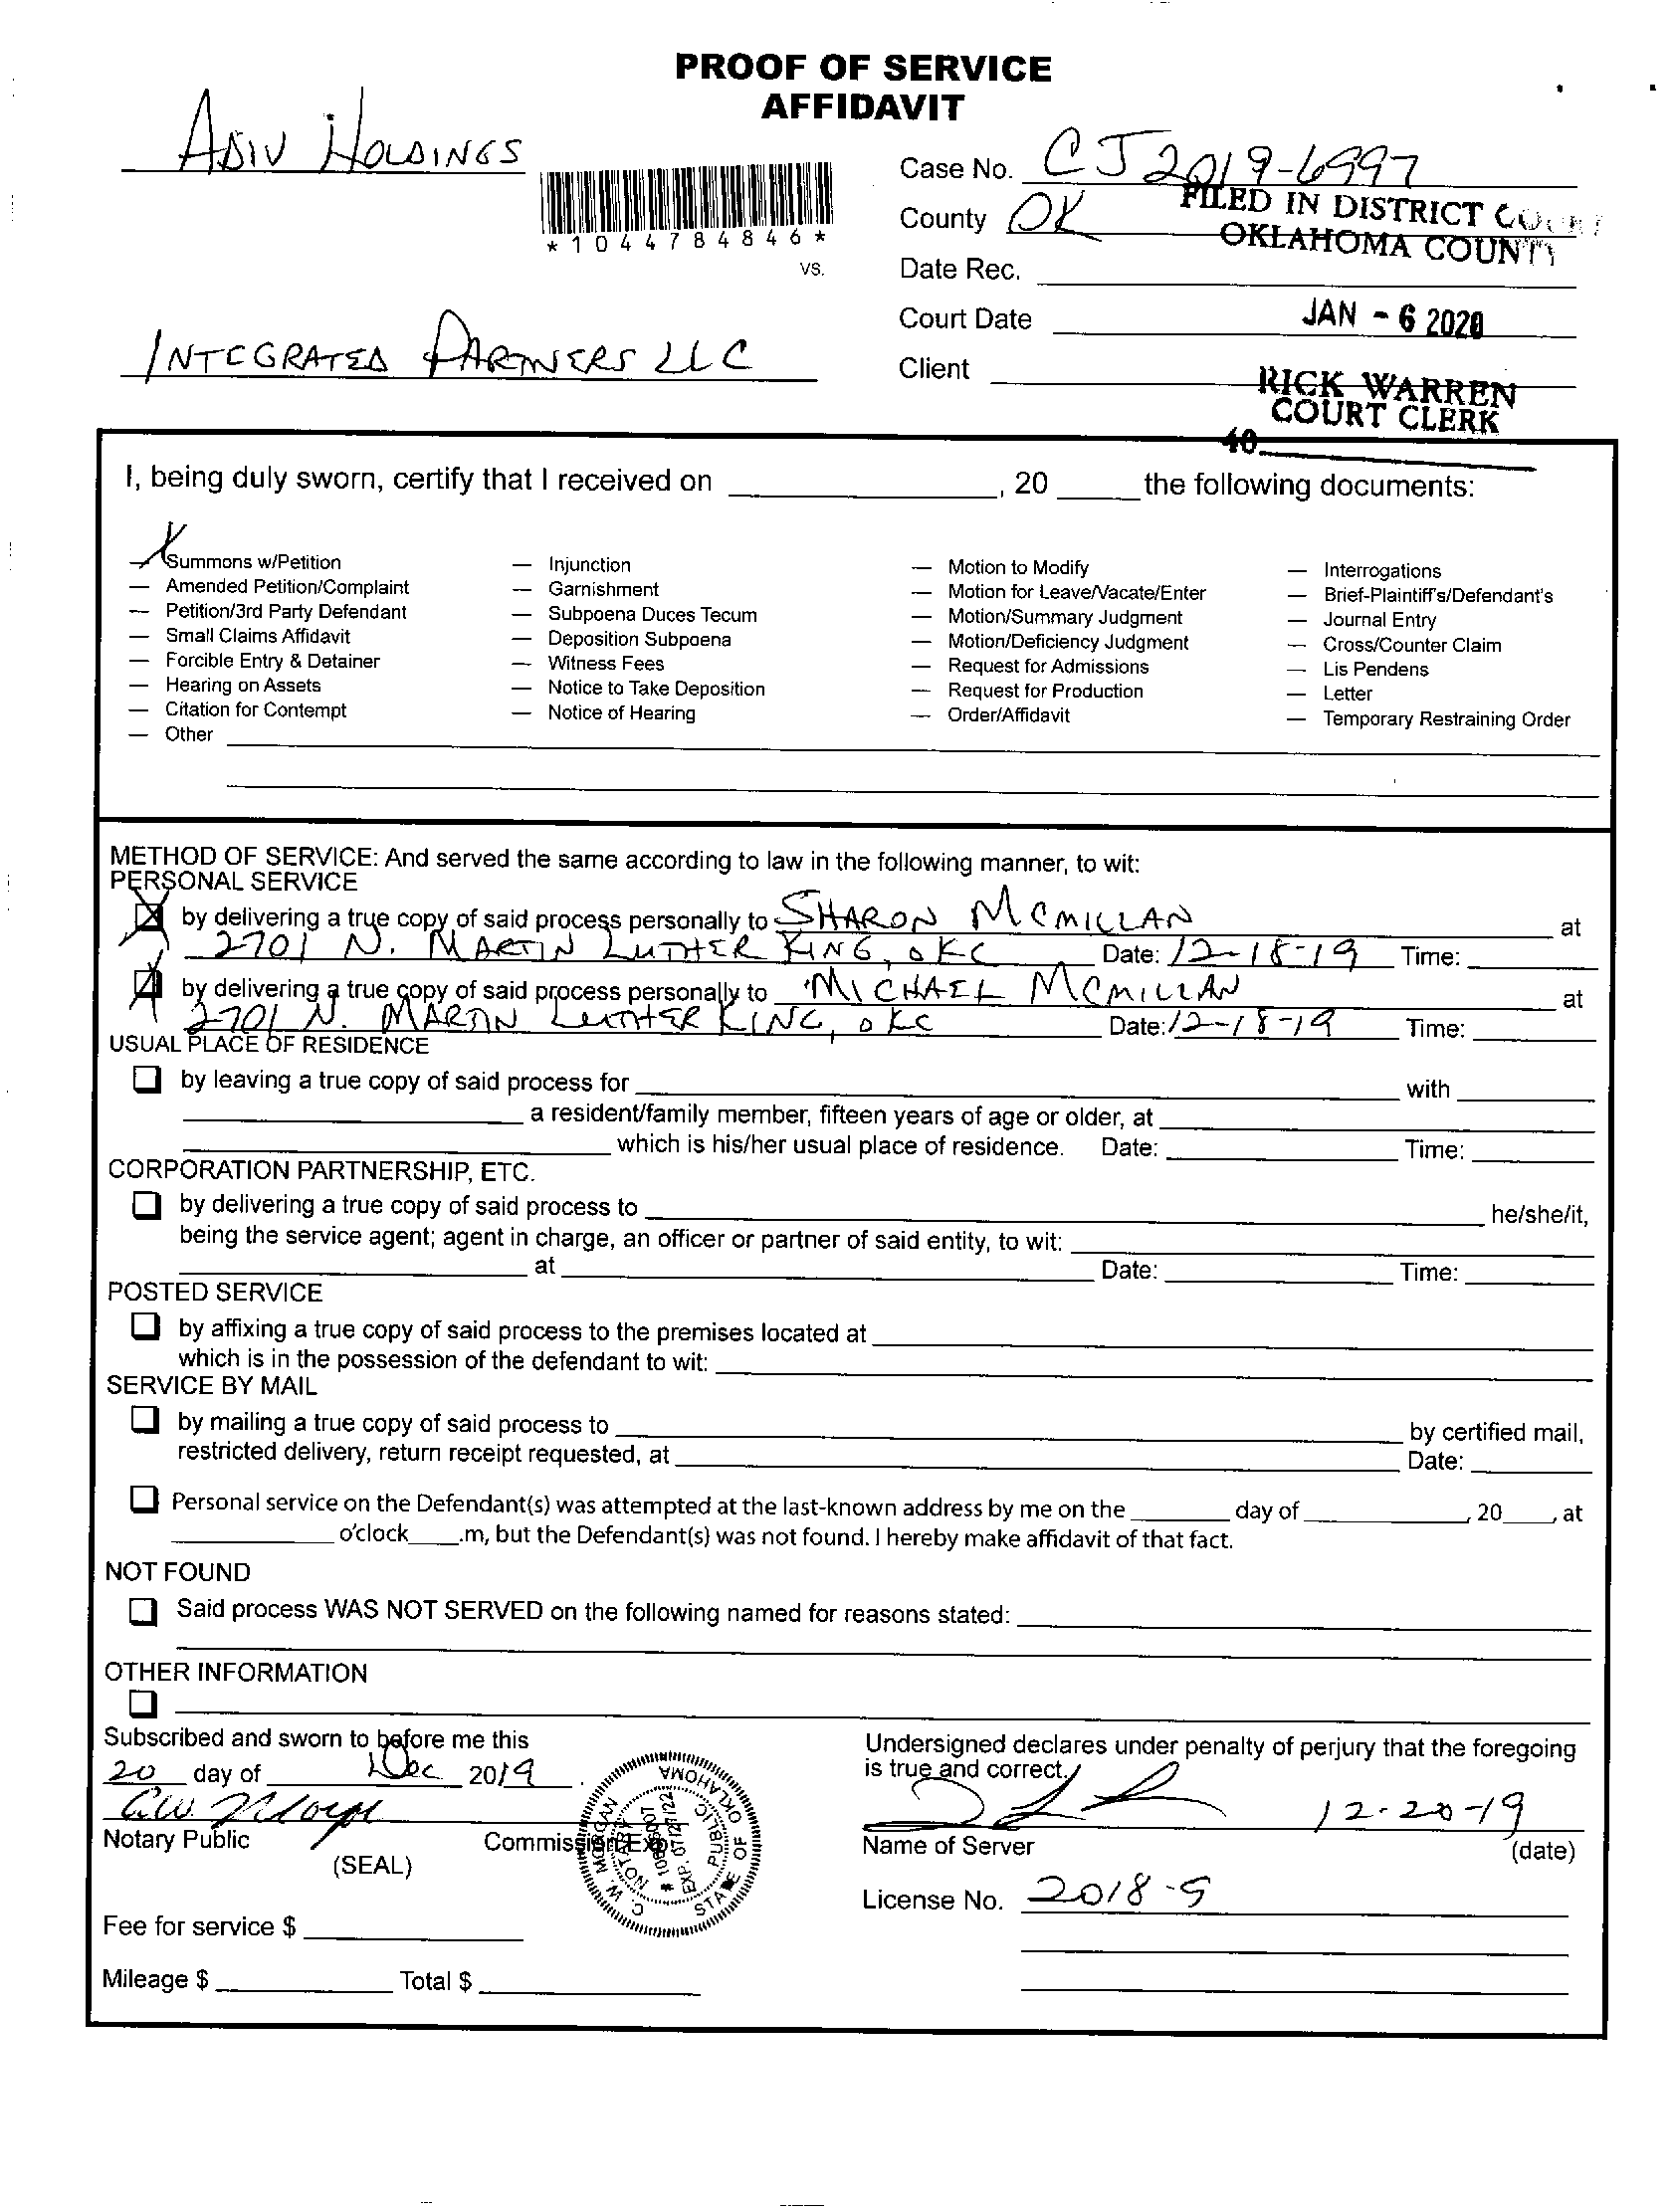 PROOF OF SERVICE
AFFIDAVIT
ADIV HOLDINGS
*1044784846*
vs.
INTEGRATED PARTNERS LLC
Case No. CJ 2019-6997
County OK
FILED IN DISTRICT COURT
OKLAHOMA COUNTY
Date Rec.
Court Date
JAN - 6 2020
Client
RICK WARREN
COURT CLERK
40
I, being duly sworn, certify that I received on ____, 20 ____ the following documents:
X Summons w/Petition
— Amended Petition/Complaint
— Petition/3rd Party Defendant
— Small Claims Affidavit
— Forcible Entry & Detainer
— Hearing on Assets
— Citation for Contempt
— Other
— Injunction
— Garnishment
— Subpoena Duces Tecum
— Deposition Subpoena
— Witness Fees
— Notice to Take Deposition
— Notice of Hearing
— Motion to Modify
— Motion for Leave/Vacate/Enter
— Motion/Summary Judgment
— Motion/Deficiency Judgment
— Request for Admissions
— Request for Production
— Order/Affidavit
— Interrogations
— Brief-Plaintiff's/Defendant's
— Journal Entry
— Cross/Counter Claim
— Lis Pendens
— Letter
— Temporary Restraining Order
METHOD OF SERVICE: And served the same according to law in the following manner, to wit:
PERSONAL SERVICE
by delivering a true copy of said process personally to SHARON MCMILLAN at
2701 N. MARTIN LUTHER KING, OKC Date: 12-18-19 Time:
by delivering a true copy of said process personally to MICHAEL MCMILLAN at
2701 N. MARTIN LUTHER KING, OKC Date: 12-18-19 Time:
USUAL PLACE OF RESIDENCE
by leaving a true copy of said process for ____ with
a resident/family member, fifteen years of age or older, at
which is his/her usual place of residence. Date: ____ Time:
CORPORATION PARTNERSHIP, ETC.
by delivering a true copy of said process to ____ he/she/it,
being the service agent; agent in charge, an officer or partner of said entity, to wit:
at ____ Date: ____ Time:
POSTED SERVICE
by affixing a true copy of said process to the premises located at
which is in the possession of the defendant to wit:
SERVICE BY MAIL
by mailing a true copy of said process to ____ by certified mail,
restricted delivery, return receipt requested, at ____ Date:
Personal service on the Defendant(s) was attempted at the last-known address by me on the ____ day of ____, 20____, at
____ o'clock ____.m, but the Defendant(s) was not found. I hereby make affidavit of that fact.
NOT FOUND
Said process WAS NOT SERVED on the following named for reasons stated:
OTHER INFORMATION
Subscribed and sworn to before me this
20 day of Dec 2019
C.W. Morgan
Notary Public
(SEAL)
Commission Exp.
C. W. MORGAN
NOTARY PUBLIC
EXP. 07/27/22
STATE OF OKLAHOMA
Fee for service $
Mileage $ ____ Total $
Undersigned declares under penalty of perjury that the foregoing
is true and correct.
12-20-19
Name of Server (date)
License No. 2018-9